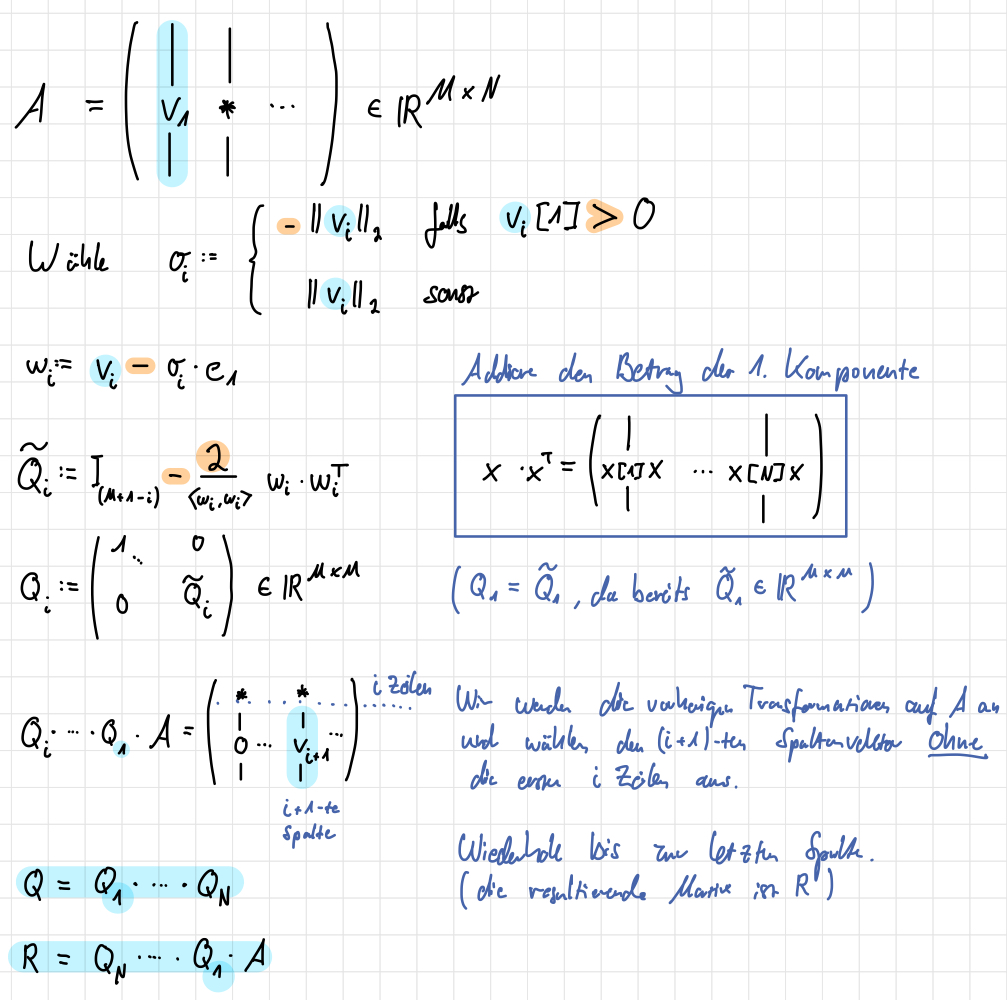 A = ( v₁ * ⋯ ) ∈ ℝ^{M×N}
Wähle σᵢ := { -‖vᵢ‖₂ falls vᵢ[1] > 0
‖vᵢ‖₂ sonst
wᵢ := vᵢ - σᵢ · e₁
Addiere den Betrag der 1. Komponente
Q̃ᵢ := I_{(M+1-i)} - 2/⟨wᵢ,wᵢ⟩ wᵢ · wᵢᵀ
x · xᵀ = ( x[1]x ⋯ x[N]x )
Qᵢ := ( 1 ⋱ 0
0 Q̃ᵢ ) ∈ ℝ^{M×M}
( Q₁ = Q̃₁, da bereits Q̃₁ ∈ ℝ^{M×M} )
Qᵢ · ⋯ · Q₁ · A = ( * ⋯ * i Zeilen
0 ⋯ vᵢ₊₁ ⋯ )
i+1-te
Spalte
Wir wenden die vorherigen Transformationen auf A an
und wählen den (i+1)-ten Spaltenvektor Ohne
die ersten i Zeilen aus.
Wiederhole bis zur letzten Spalte.
(die resultierende Matrix ist R)
Q = Q₁ · ⋯ · Q_N
R = Q_N ⋯ · Q₁ · A